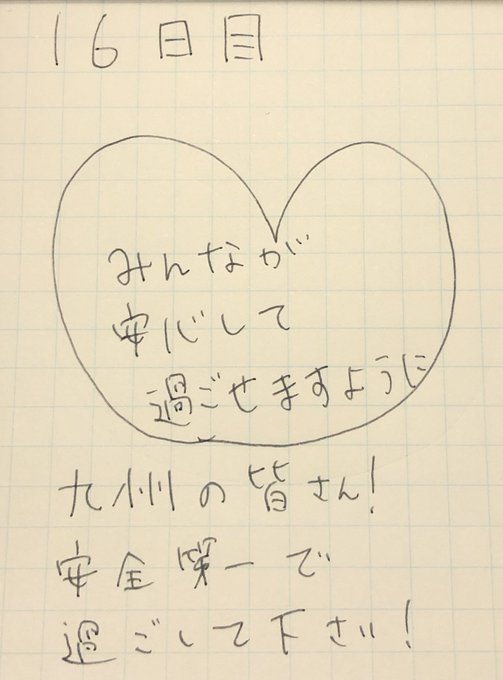 16日目
みんなが
安心して
過ごせますように
九州の皆さん!
安全第一で
過ごして下さい!